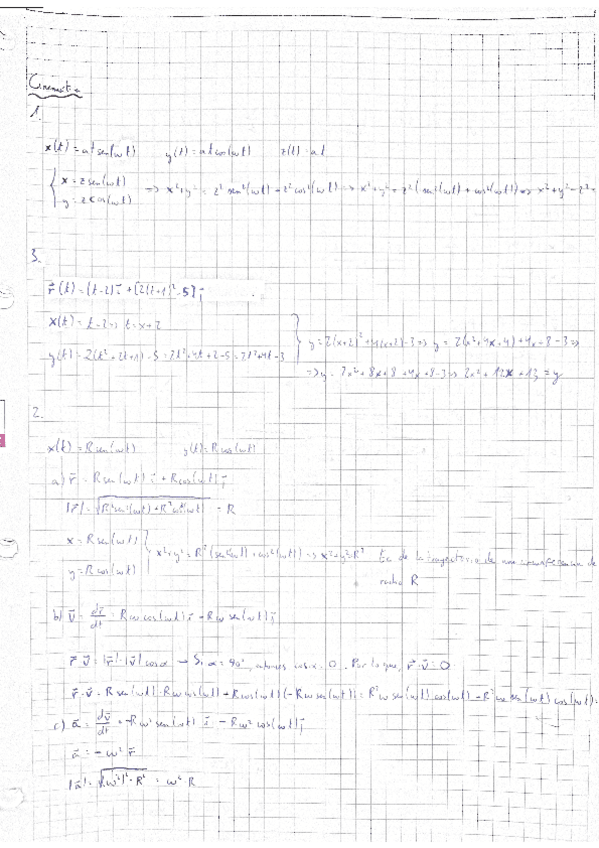 Cinematica
1.
x(t) = at sen(ωt)    y(t) = at cos(ωt)    z(t) = at
{ x = z sen(ωt)
y = z cos(ωt) => x²+y² = z² sen²(ωt) + z² cos²(ωt) => x²+y² = z² (sen²(ωt) + cos²(ωt)) => x²+y² = z²
3.
r⃗(t) = (t-2)i⃗ + [2(t+1)²-5]j⃗
x(t) = t-2 => t = x+2
y(t) = 2(t²+2t+1)-5 = 2t²+4t+2-5 = 2t²+4t-3
} y = 2(x+2)²+4(x+2)-3 => y = 2(x²+4x+4)+4x+8-3 =>
=> y = 2x²+8x+8+4x+8-3 => 2x²+12x+13 = y
2.
x(t) = R sen(ωt)    y(t) = R cos(ωt)
a) r⃗ = R sen(ωt) i⃗ + R cos(ωt) j⃗
|r⃗| = √(R² sen²(ωt) + R² cos²(ωt)) = R
x = R sen(ωt)
y = R cos(ωt) } x²+y² = R² (sen²(ωt) + cos²(ωt)) => x²+y² = R² Ec de la trayectoria de una circunferencia de
radio R
b) v⃗ = dr⃗/dt = Rω cos(ωt) i⃗ - Rω sen(ωt) j⃗
r⃗·v⃗ = |r⃗|·|v⃗| cos α → Si α = 90°, entonces cos α = 0. Por lo que, r⃗·v⃗ = 0
r⃗·v⃗ = R sen(ωt)·Rω cos(ωt) + R cos(ωt)(-Rω sen(ωt)) = R²ω sen(ωt) cos(ωt) - R²ω sen(ωt) cos(ωt) =
c) a⃗ = dv⃗/dt = -Rω² sen(ωt) i⃗ - Rω² cos(ωt) j⃗
a⃗ = -ω² r⃗
|a⃗| = √((ω²)²·R²) = ω²·R